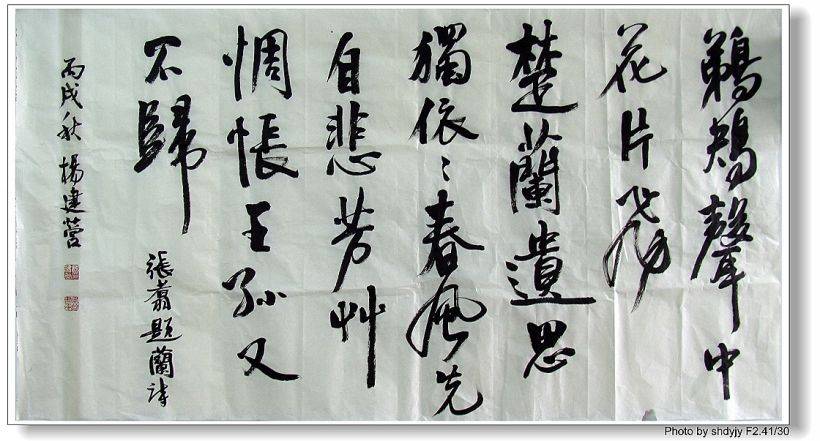 鵜鴂聲中
花片飛
楚蘭遺思
獨依〻春風先
自悲芳艸
惆悵王孫又
不歸
張翥題蘭詩
丙戌秋 楊建营
Photo by shdyjy F2.41/30